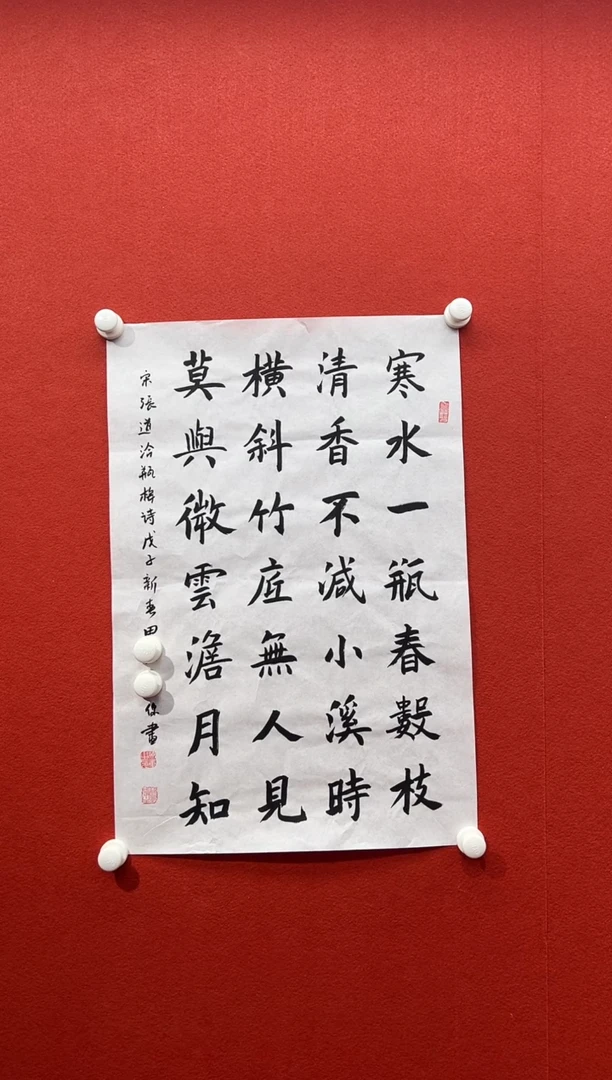 寒水一瓶春數枝
清香不減小溪時
橫斜竹底無人見
莫與微雲澹月知
宋張道洽瓶梅诗戊子新春田保書